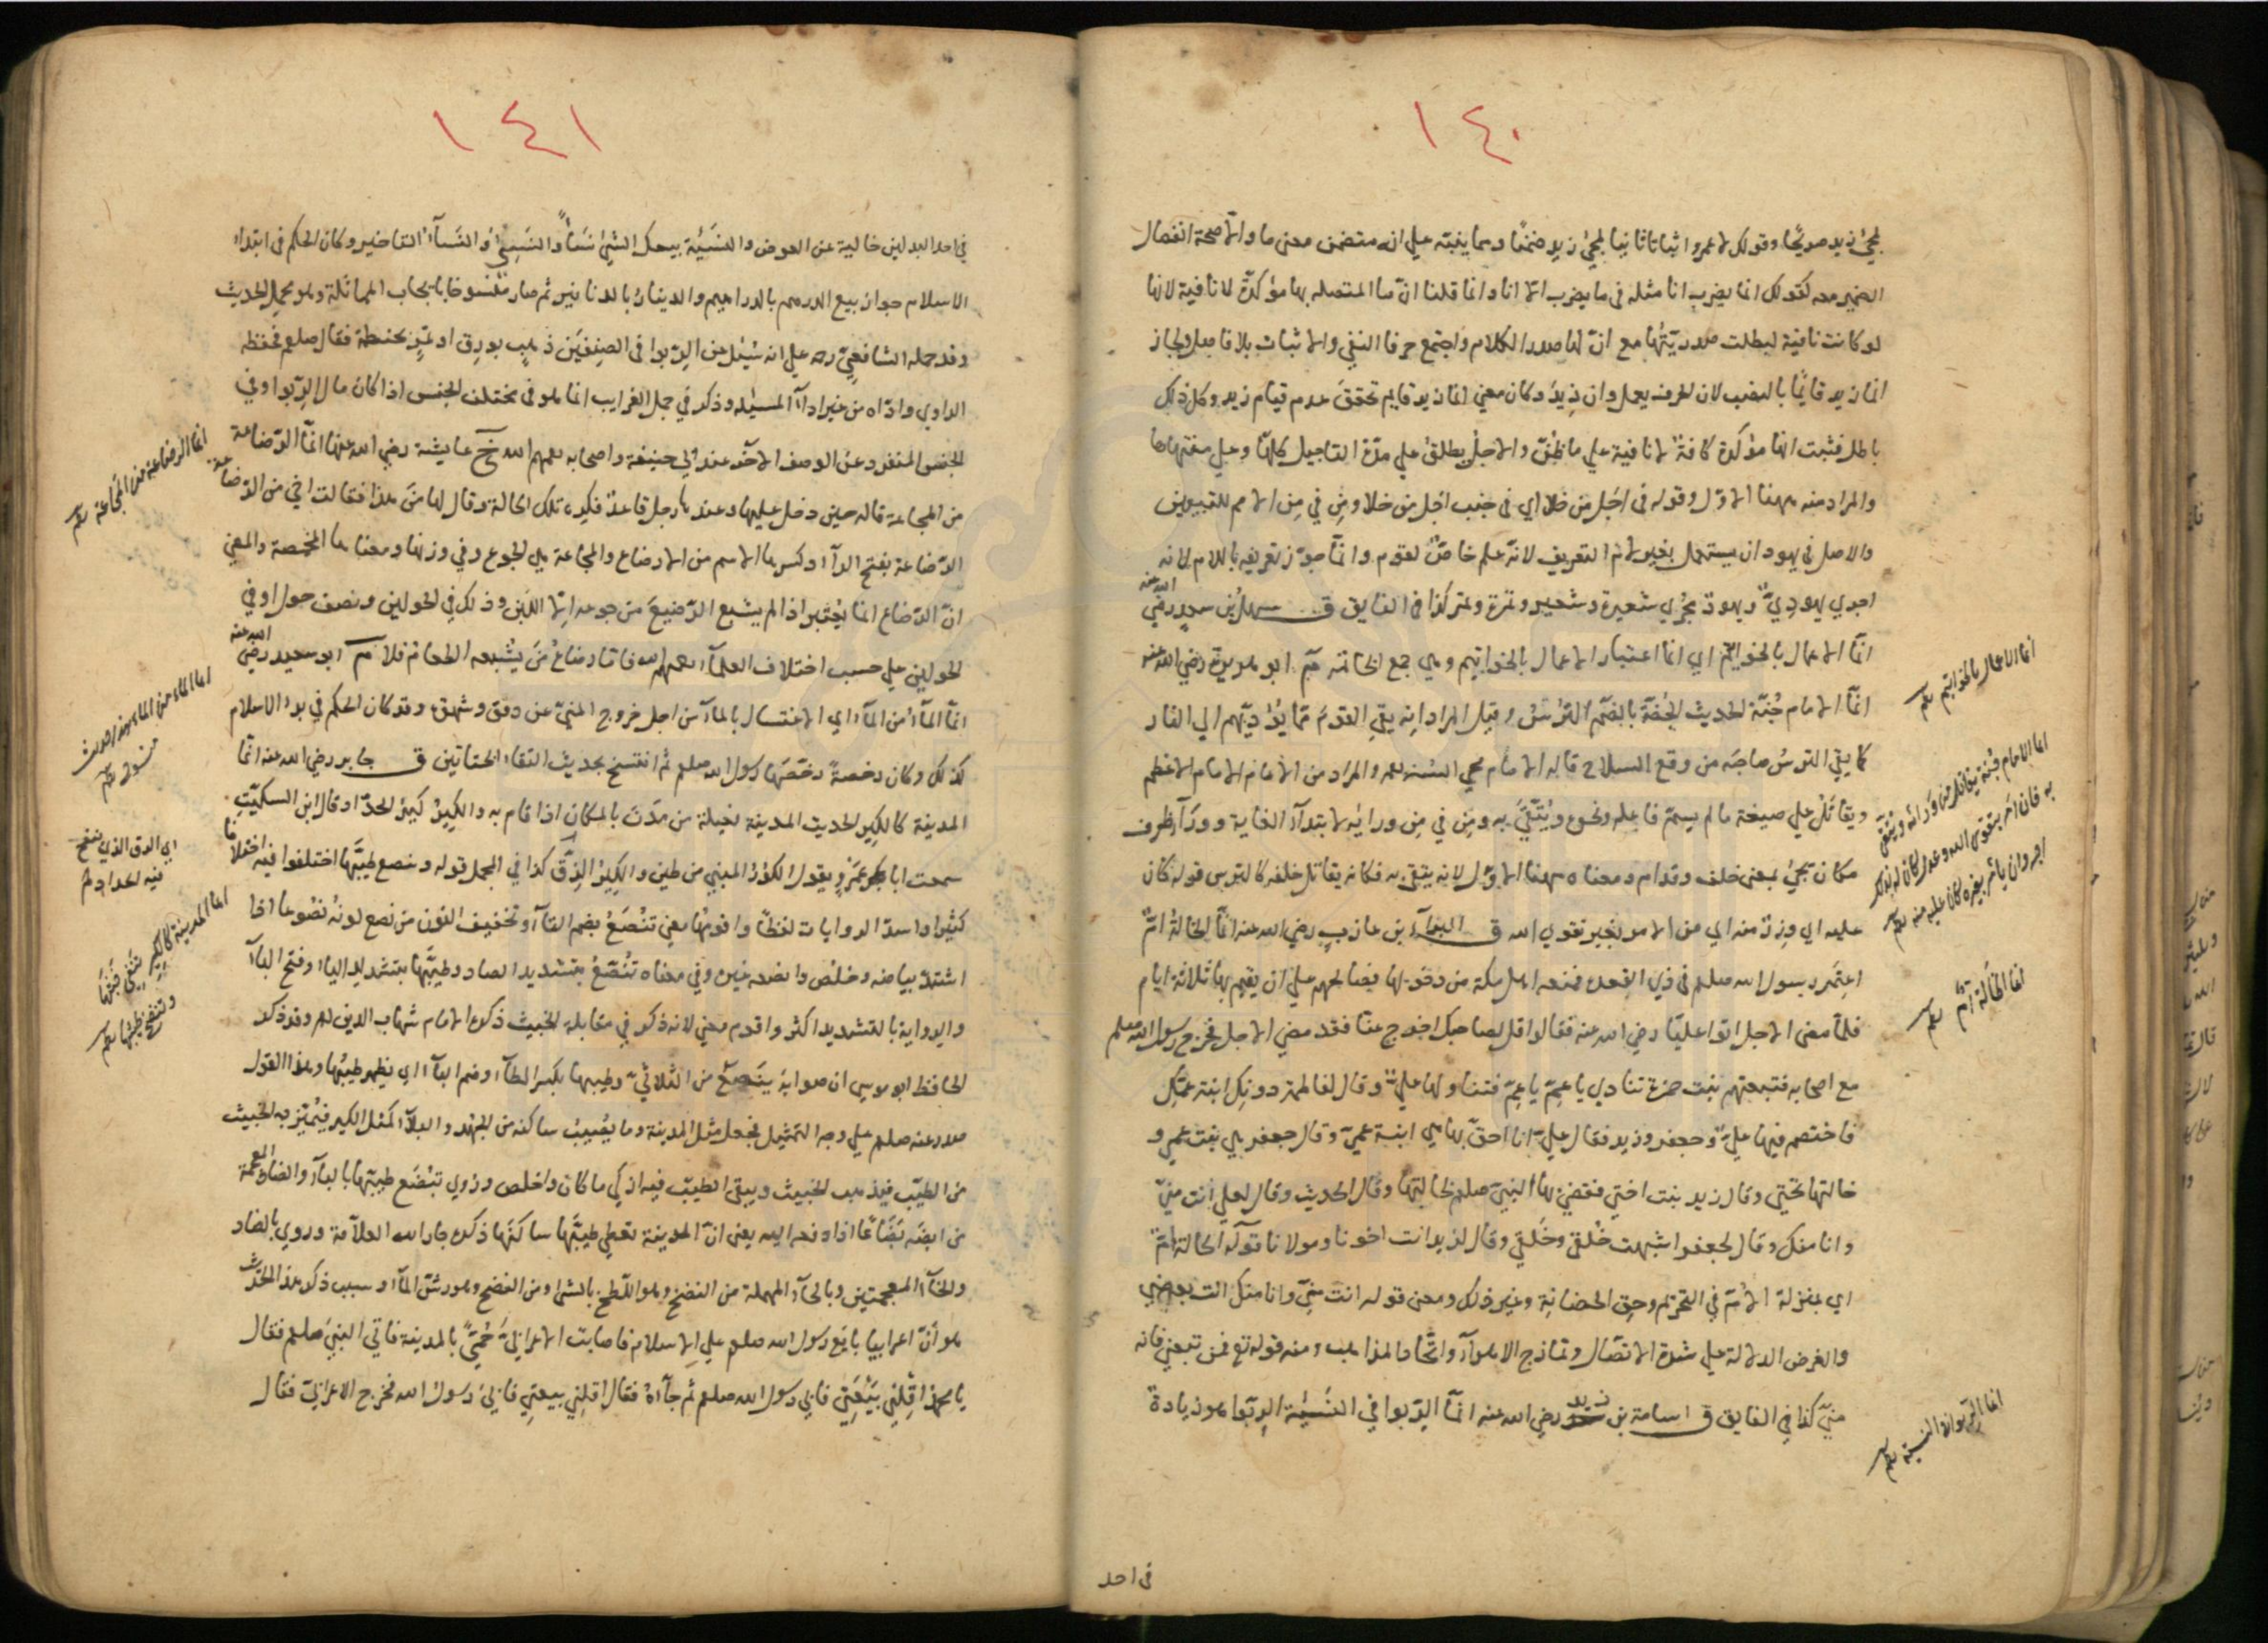 ١٤٠
لمجئ زيد صريحًا وقولك لا عمرو اثباتا ثانيا لمجئ زيد ضمنًا ومما ينبّه علي انه متضمن معنى ما والّا صحة انفصال
الضمير معه كقولك انما يضرب انا مثله في ما يضرب الا انا وانما قلنا انّ ما المتصله بها مؤكدة لا نافية لانها
لو كانت نافية لبطلت صدريّتُها مع انّ لها صدر الكلام واجتمع حرفا النفي والاثبات بلا فاصل ولجاز
انما زيد قايمًا بالنصب لان الحرف يعمل وان زِيدَ وكان معنى انما زيد قايم تحقق عدم قيام زيد وكل ذلك
باطل فثبت انها مؤكدة كافة لا نافية علي ما ظُنّ والاجل يطلق علي مدّة التاجيل كلها وعلي منتهاها
والمراد منه ههنا الاول وقوله في اجل من خلا اي في جنب اجل من خلا ومن في من الامم للتبيين
والاصل في يهود ان يستعمل بغير لام التعريف لانه علم خاصّ لقوم وانّما جوّز تعريفه باللام لانه
اجري يهوديّ ويهود مجري شعيرة وشعير وتمرة وتمر كذا في الفايق ق سهل بن سعد رضي الله عنه
انّما الاعمال بالخواتيم اي انما اعتبار الاعمال بالخواتيم وهي جمع الخاتمة م ابو هريرة رضي الله عنه
انّما الامام جُنّة الحديث الجُنّة بالضم الترس وقيل المراد انه يقي القوم مما يؤديهم الي النار
كما يقي الترس صاحبه من وقع السلاح قاله الامام محي السنه رحمه والمراد من الامام الامام الاعظم
ويقاتَل علي صيغة ما لم يسمّ فاعله ونحوه ويُتّقي به ومن في من ورائه لابتداء الغاية ووراء ظرف
مكان يجئ بمعنى خلف وقدام ومعناه ههنا الاول لانه يتقي به فكانه يقاتل خلفه كالترس قوله كان
عليه اي وزرٌ منه اي من الامر بغير تقوي الله ق البراء بن عازب رضي الله عنه انّما الخالة امّ
اعتمر رسول الله صلعم في ذي القعده فمنعه اهل مكة من دخولها فصالحهم علي ان يقيم بها ثلاثة ايام
فلمّا مضى الاجل اتوا عليّا رضي الله عنه فقالوا قل لصاحبك اخرج عنّا فقد مضي الاجل فخرج رسول الله صلعم
مع اصحابه فتبعتهم بنت حمزة تنادي يا عمّ يا عمّ فتناولها عليّ وقال لفاطمة دونكِ ابنة عمّكِ
فاختصم فيها عليّ وجعفر وزيد فقال عليّ انا احقّ بها هي ابنة عمي وقال جعفر هي بنت عمي و
خالتها تحتي وقال زيد بنت اختي فقضي بها النبي صلعم لخالتها وقال الحديث وقال لعلي انت منّي
وانا منك وقال لجعفر اشبهت خَلقي وخُلقي وقال لزيد انت اخونا ومولانا قوله الخالة امّ
اي بمنزلة الامّ في التحريم وحق الحضانة وغير ذلك ومعنى قوله انت منّي وانا منك انت بعضي
والغرض الدلالة علي شدة الاتصال وتمازج الاهواء واتحاد المذاهب ومنه قوله تع فمن تبعني فانه
منّي كذا في الفايق ق اسامة بن زيد رضي الله عنه انّما الرّبوا في النّسيئة الربوا هو زيادة
انما الاعمال بالخواتيم
انما الامام جُنّة يقاتل من ورائه ويُتّقي
به فان امر بتقوى الله وعدل كان له بذلك
اجر وان يأمر بغيره كان عليه منه
انما الخالة امّ
انما الرّبوا في النسيئة
في احد
١٤١
في احد البدلين خالية عن العوض والنسيئة بيعك الشئ نَسَأً والنّسيئُ والنّساء التاخير وكان الحكم في ابتداء
الاسلام جواز بيع الدرهم بالدراهيم والدينار بالدنانير ثم صار منسوخا بايجاب المماثلة وهو محمل الحديث
وقد حمله الشافعيّ رحه علي انه سُئل عن الربوا في الصنفين ذهب بورق او تمر بحنطة فقال صلعم فحفظه
الراوي وادّاه من غير اداء المسئله وذكر في جمل الغرايب انما هو في مختلف الجنس اذا كان مال الربوا وفي
الجنس المنفرد عن الوصف الاخر عند ابي حنيفة واصحابه رحمهم الله خ عايشة رضي الله عنها انّما الرّضاعة
من المجاعة قاله حين دخل عليها وعندها رجل قاعد فكره تلك الحالة وقال لها من هذا فقالت اخي من الرّضاعة
الرّضاعة بفتح الراء وكسرها الاسم من الارضاع والمجاعة هي الجوع وفي وزنها ومعناها المخمصة والمعني
انّ الرّضاع انما يُعتبر اذا لم يشبع الرّضيعَ من جوعه الا اللبن وذلك في الحولين ونصف حول او في
الحولين علي حسب اختلاف العلماء رحمهم الله فاما رضاع من يُشبعه الطعام فلا م ابو سعيد رضي الله عنه
انّما الماء من الماء اي الاغتسال بالماء من اجل خروج المنيّ عن دفق وشهوة وقد كان الحكم في بدء الاسلام
كذلك وكان رخصة رخّصها رسول الله صلعم ثم انتسخ بحديث التقاء الختانين ق جابر رضي الله عنه انّما
المدينة كالكير الحديث المدينة فعيلة من مدن بالمكان اذا قام به والكير كير الحدّاد وقال ابن السكيت
سمعت ابا عمرو يقول الكور المبني من طين والكير الزق كذا في المجمل قوله وتنصع طيّبها اختلفوا فيه اختلافا
كثيرا واسدّ الروايات لفظًا واقومها معني تَنْصَعُ بضم التاء وتخفيف النون من نصع لونه نصوعا اذا
اشتدّ بياضه وخلص وانصعه غيره وفي معناه تُنَصّعُ بتشديد الصاد وطيّبها بتشديد الياء وفتح الباء
والرواية بالتشديد اكثر واقوم معني لانه ذكر في مقابلة الخبيث ذكره الامام شهاب الدين رحه وقد ذكر
الحافظ ابو موسي ان صوابه ينصع من الثلاثيّ وطيبها بكسر الطاء وضم الباء اي يظهر طيبها وهذا القول
صدر عنه صلعم علي وجه التمثيل فجعل مثل المدينة وما يُصيب ساكنه من الجهد والبلاء كمثل الكير فيُميّز به الخبيث
من الطيّب فيذهب الخبيث ويبقي الطيّب فيه ازكي ما كان واخلص وروي تبضع طيبها بالباء والضاد المعجمة
من ابضعه بضاعًا اذا دفعه اليه يعني انّ المدينة تعطي طيّبها ساكنَها ذكره جار الله العلّامة وروي بالضاد
والخاء المعجمتين وبالحاء المهملة من النضخ وهو اللّطخ بالشئ ومن النضح وهو رشّ الماء وسبب ذكر هذا الحديث
هو أنّ اعرابيا بايع رسول الله صلعم علي الاسلام فاصابت الاعرابيّ حُمّي بالمدينة فاتي النبيّ صلعم فقال
يا محمد اقلني بيعتي فابي رسول الله صلعم ثم جاءه فقال اقلني بيعتي فابي رسول الله فخرج الاعرابيّ فقال
انما الرضاعة من المجاعة
انما الماء من الماء هذا الحديث
منسوخ
اي الزق الذي ينفخ
فيه الحداد
انما المدينة كالكير تنفي خبثها
وتنصع طيّبها